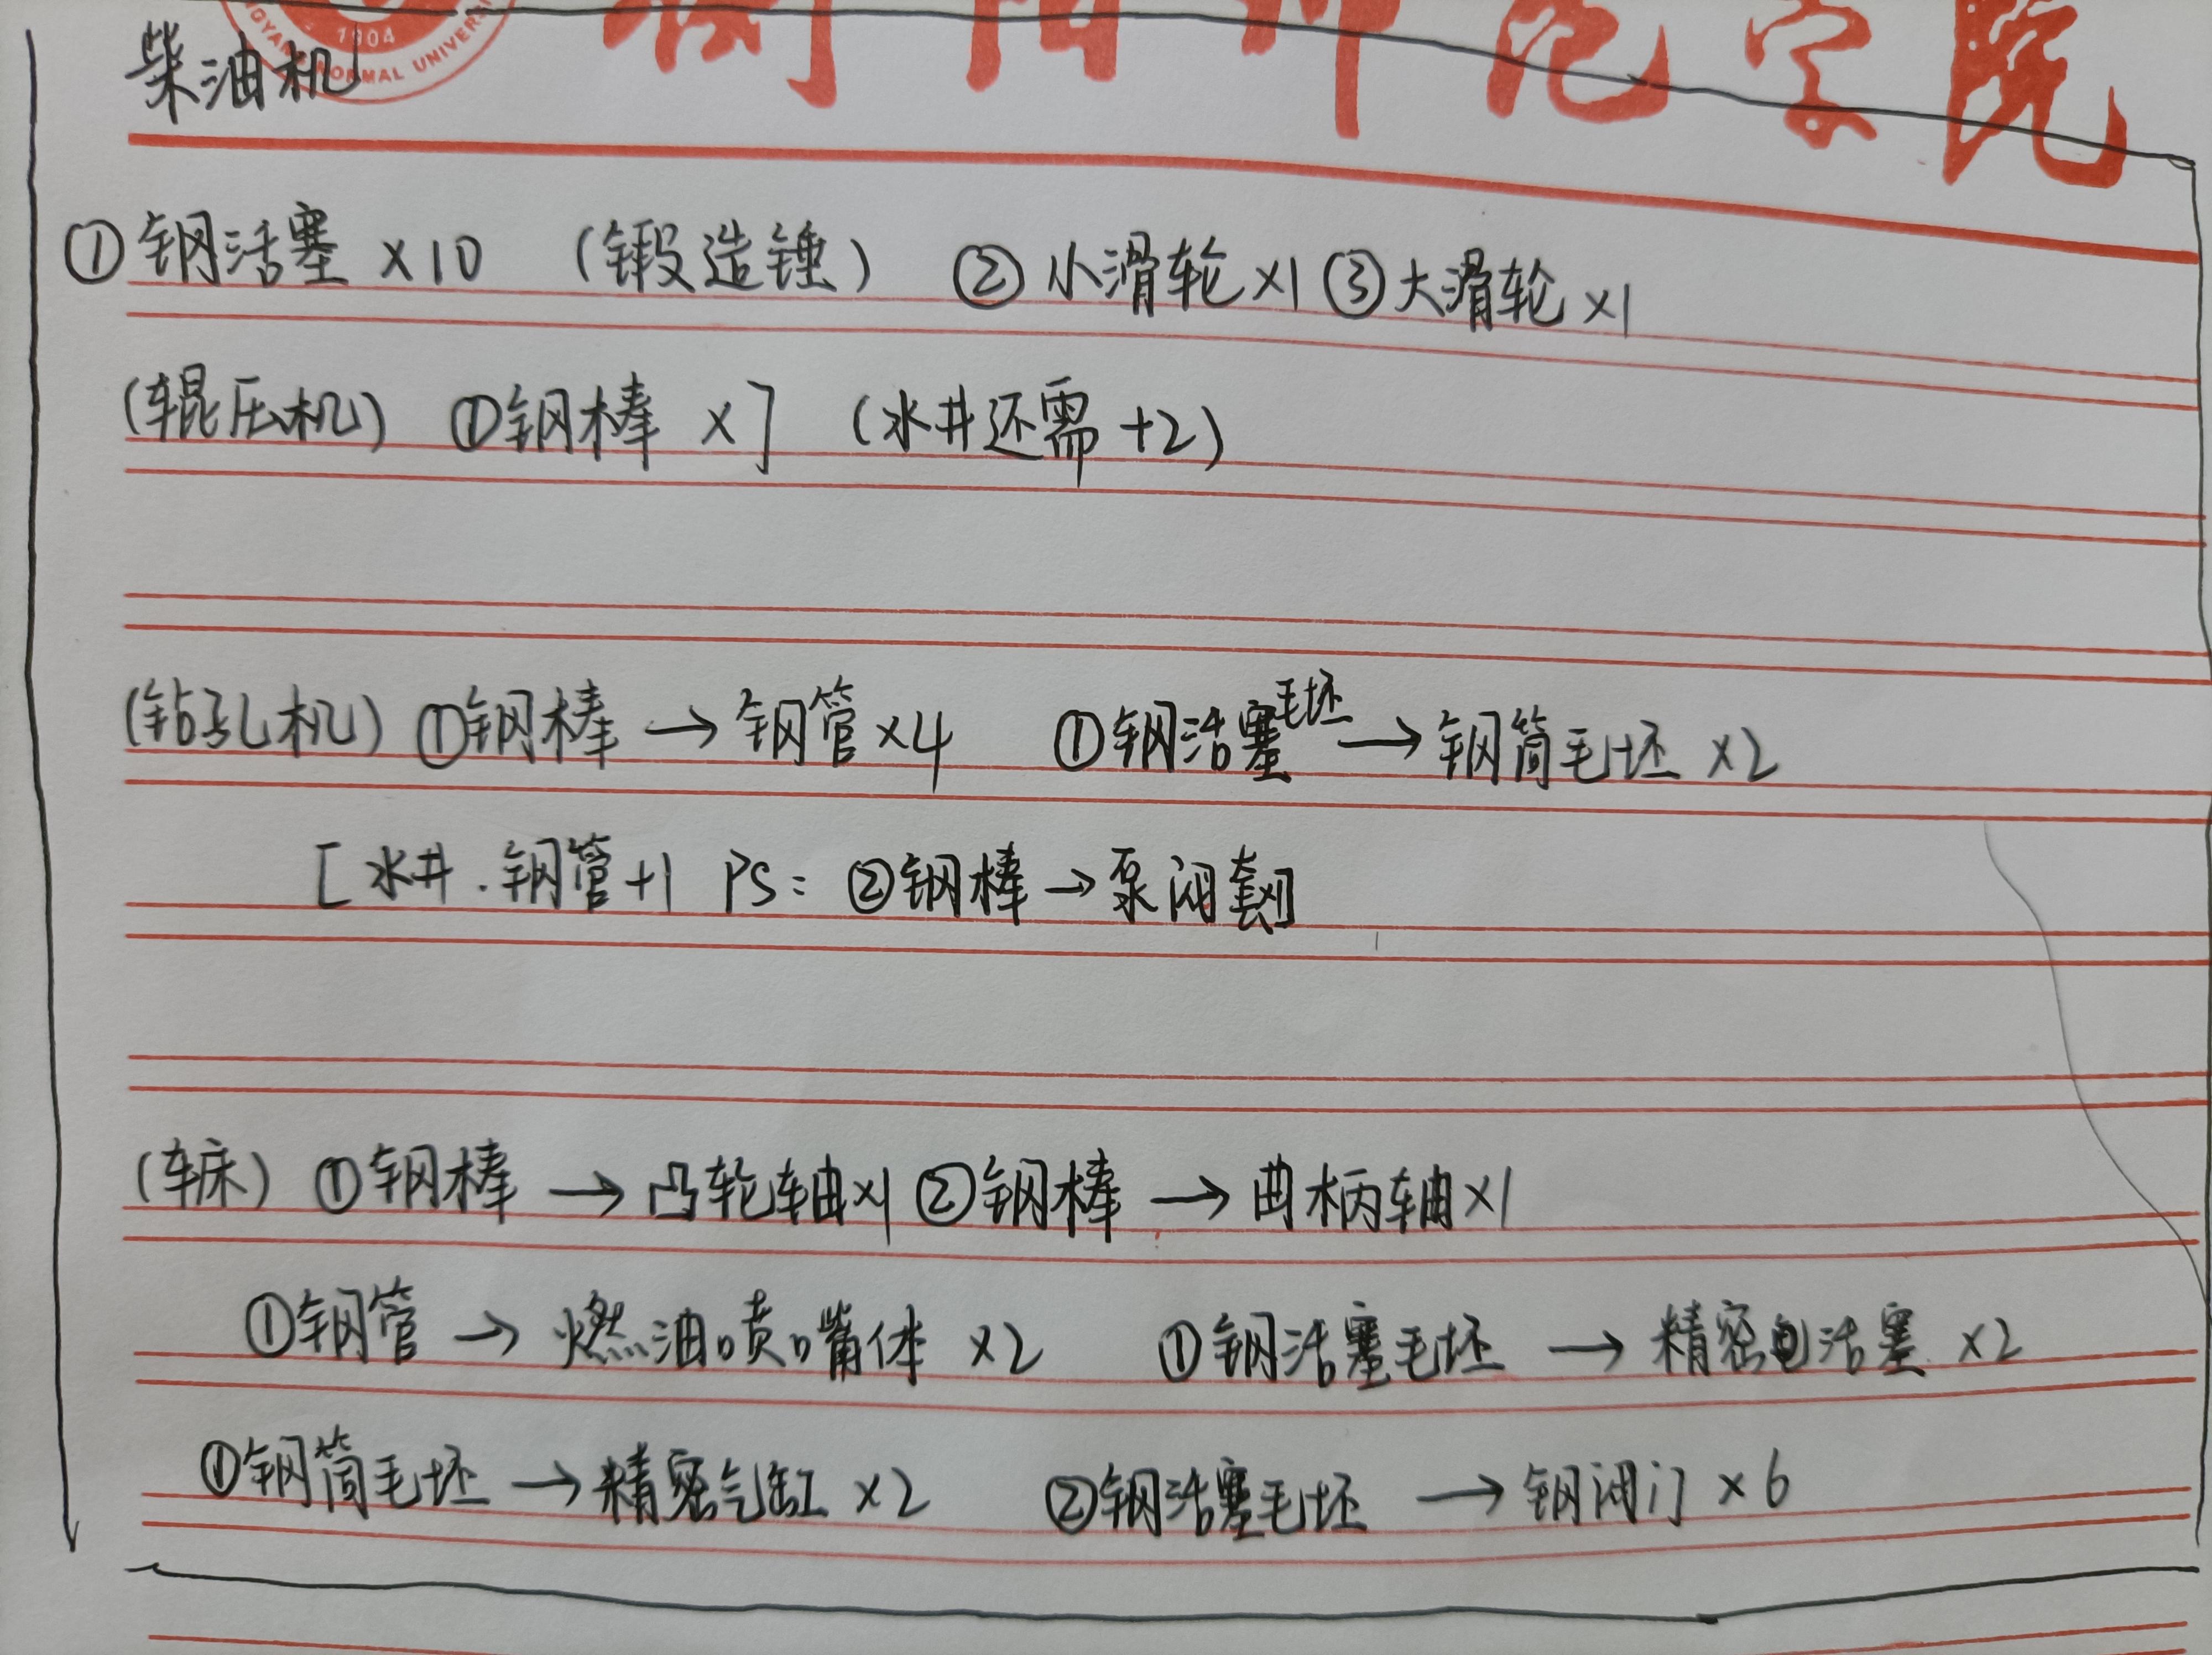 衡阳师范学院
1904
NORMAL UNIVERSI
柴油机
①钢活塞 ×10 (锻造锤) ②小滑轮×1 ③大滑轮×1
(辊压机) ①钢棒 ×] (水井还需+2)
(钻孔机) ①钢棒 → 钢管×4 ①钢活塞毛坯 → 钢筒毛坯 ×2
[水井.钢管+1 PS: ②钢棒→泵阀套]
(车床) ①钢棒 → 凸轮轴×1 ②钢棒 → 曲柄轴×1
①钢管 → 燃油喷嘴体 ×2 ①钢活塞毛坯 → 精密活塞 ×2
①钢筒毛坯 → 精密气缸 ×2 ②钢活塞毛坯 → 钢阀门 ×6